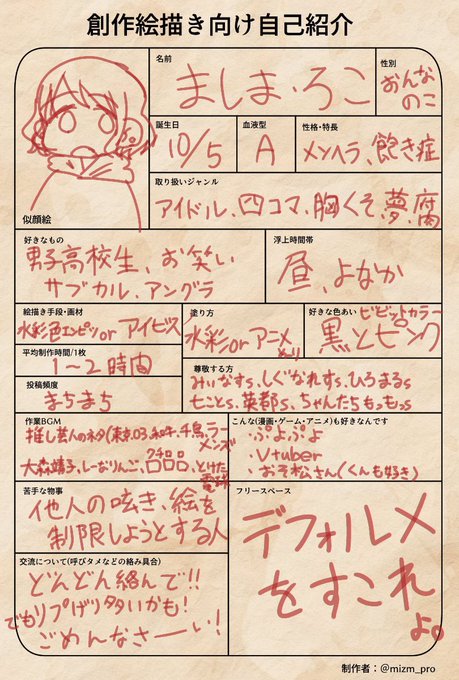 創作絵描き向け自己紹介
名前
ましま・ろこ
性別
おんな
のこ
誕生日
10/5
血液型
A
性格・特長
メンヘラ、飽き症
取り扱いジャンル
アイドル、四コマ、胸くそ、夢、腐
似顔絵
好きなもの
男子高校生、お笑い
サブカル、アングラ
浮上時間帯
昼、よなか
絵描き手段・画材
水彩色エンピツor アイビス
塗り方
水彩orアニメ
メリ
好きな色あい
ビビットカラー
黒とピンク
平均制作時間/1枚
1〜2時間
投稿頻度
まちまち
尊敬する方
みぃなすs、しぐなれすs、ひろまるs
七ことs、英都s、ちゃんたちもっもっs
作業BGM
推し芸人のネタ(東京03、和牛、千鳥、ラー
メンズ
大森靖子、しーなりんご、
クチロロ
口口口、とけた
電球
こんな(漫画・ゲーム・アニメ)も好きなんです
・ぷよぷよ
・Vtuber
・おそ松さん(くんも好き)
苦手な物事
他人の呟き、絵を
制限しようとする人
フリースペース
デフォルメ
をすこれ
よ。
交流について(呼びタメなどの絡み具合)
どんどん絡んで!!
でもリプげり多いかも!
ごめんなさーい!
制作者：@mizm_pro